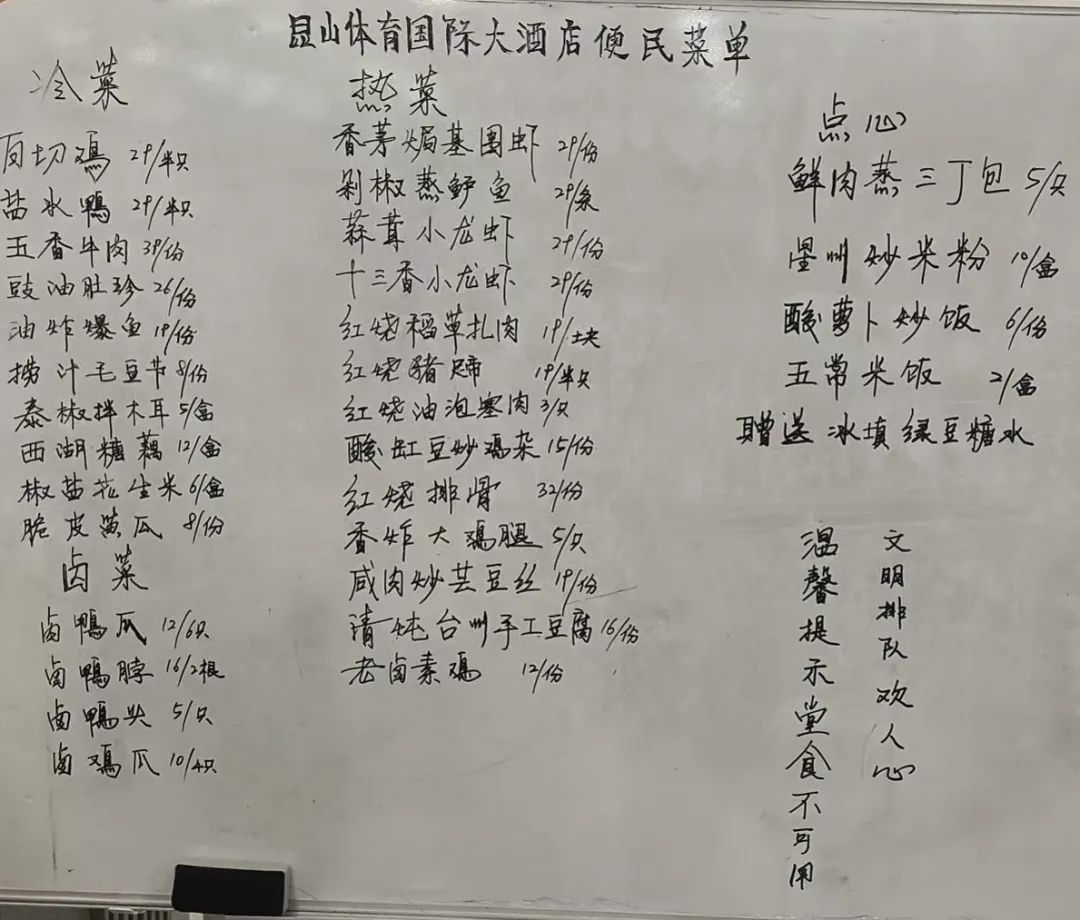 昆山体育国际大酒店便民菜单
冷菜
白切鸡 29/半只
盐水鴨 29/半只
五香牛肉 39/份
豉油肚珍 26/份
油炸爆鱼 19/份
捞汁毛豆节 8/份
泰椒拌木耳 5/盒
西湖糖藕 12/盒
椒盐花生米 6/盒
脆皮黄瓜 8/份
卤菜
卤鴨爪 12/6只
卤鴨脖 16/2根
卤鴨头 5/只
卤鸡爪 10/4只
热菜
香茅焗基围虾 29/份
剁椒蒸鲈鱼 29/条
蒜茸小龙虾 29/份
十三香小龙虾 29/份
红烧稻草扎肉 19/块
红烧豬蹄 19/半只
红烧油泡塞肉 3/只
酸缸豆炒鸡杂 15/份
红烧排骨 32/份
香炸大鸡腿 5/只
咸肉炒芸豆丝 19/份
清炖台州手工豆腐 16/份
老卤素鸡 12/份
点心
鲜肉蒸三丁包 5/只
星州炒米粉 10/盒
酸萝卜炒饭 6/份
五常米饭 2/盒
赠送冰填绿豆糖水
文明排队欢人心
温馨提示堂食不可用